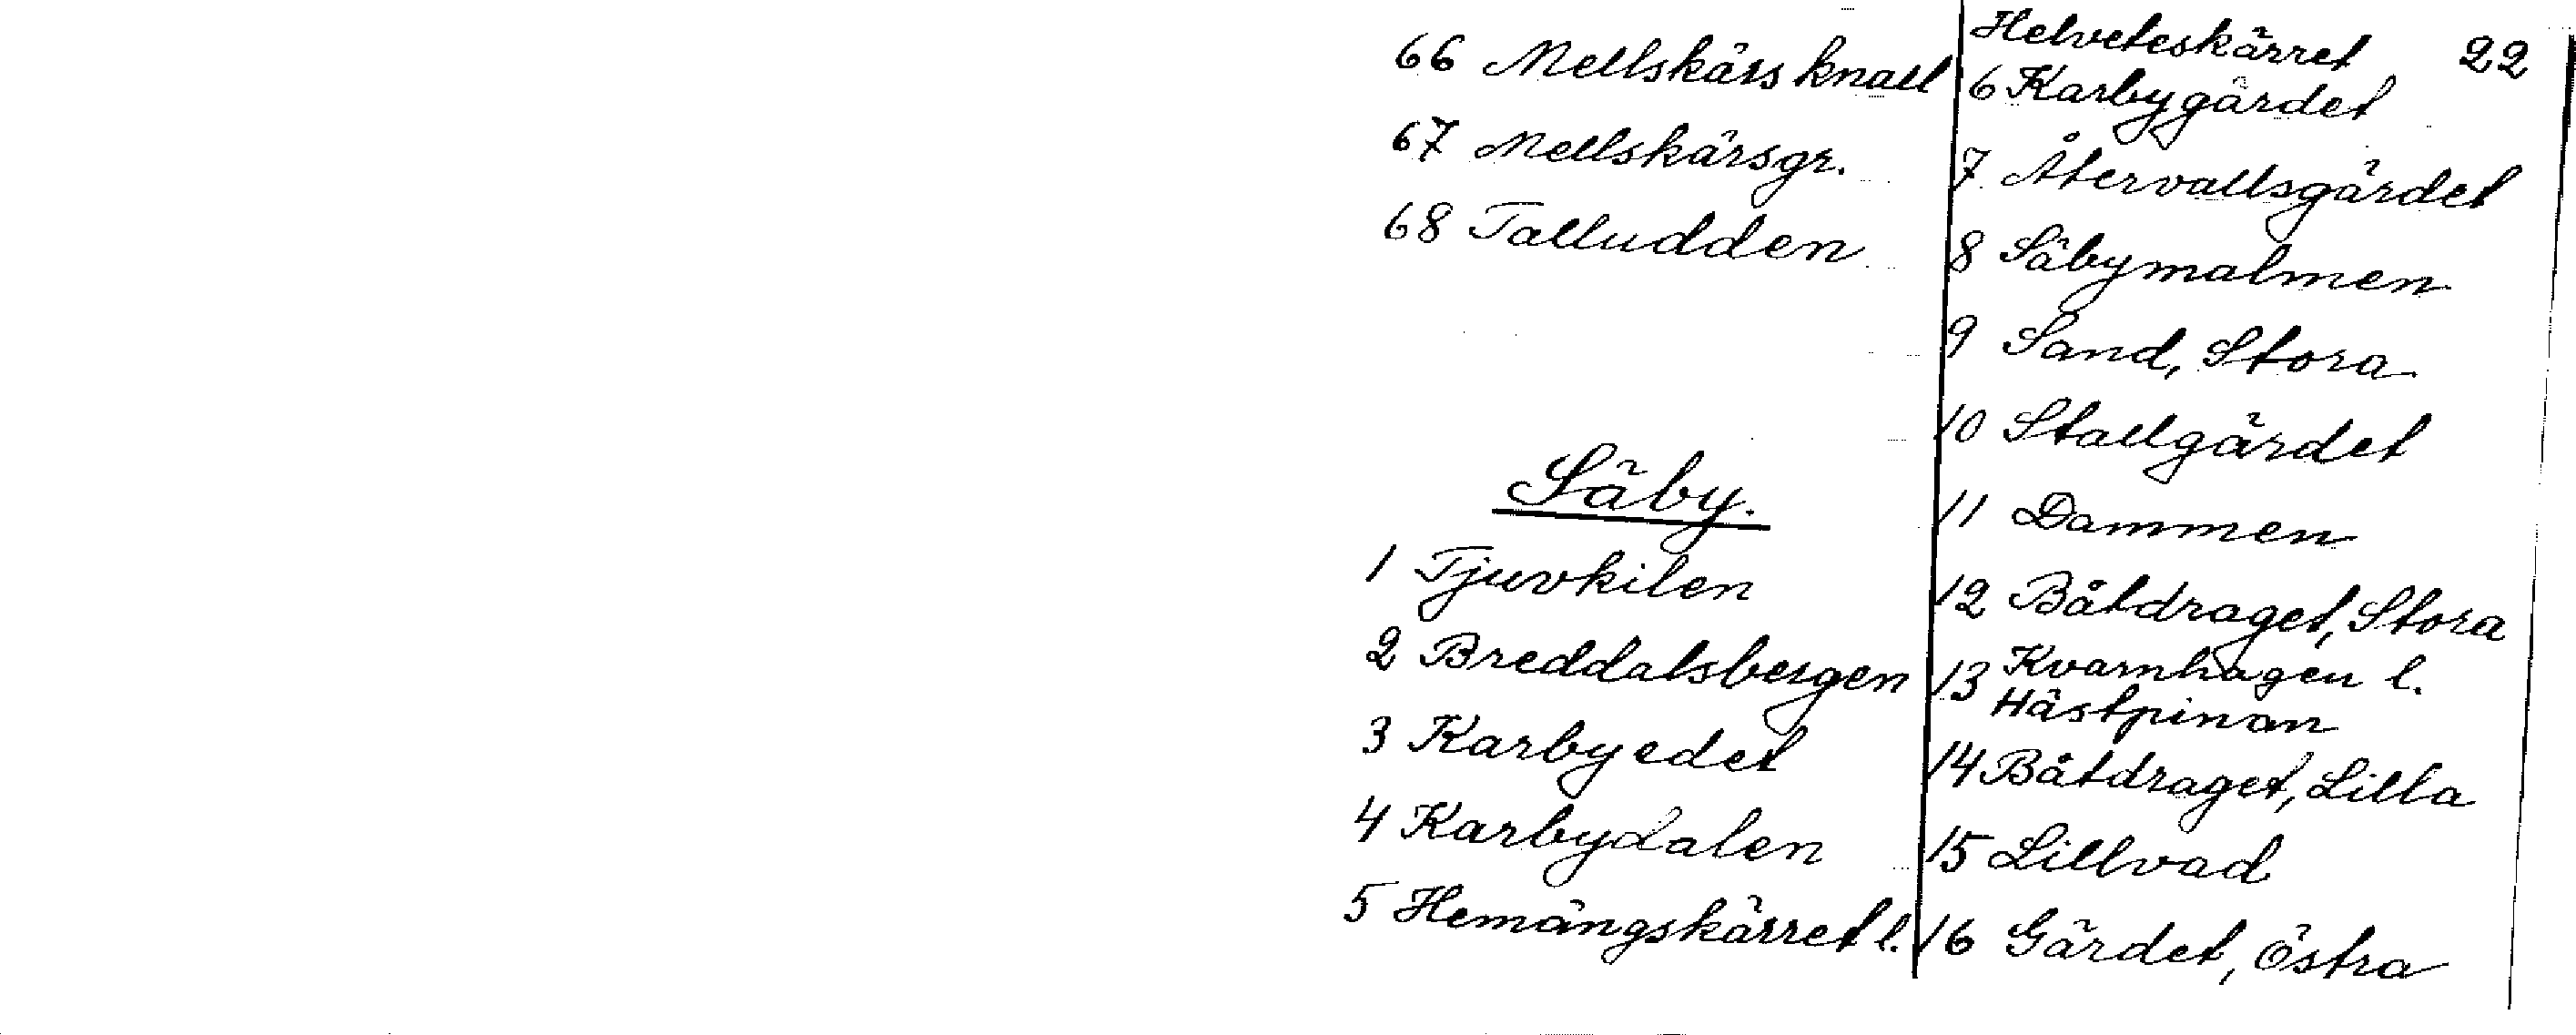 66 Mellskärs knall
67 Mellskärsgr.
68 Talludden
Säby.
1 Tjuvkilen
2 Breddalsbergen
3 Karbyedet
4 Karbydalen
5 Hemängskärret l.
Helveteskärret 22
6 Karbygärdet
7 Återvallsgärdet
8 Säbymalmen
9 Sand, Stora
10 Stallgärdet
11 Dammen
12 Båtdraget, Stora
13 Kvarnhagen l.
Hästpinan
14 Båtdraget, Lilla
15 Lillvad
16 Gärdet, Östra